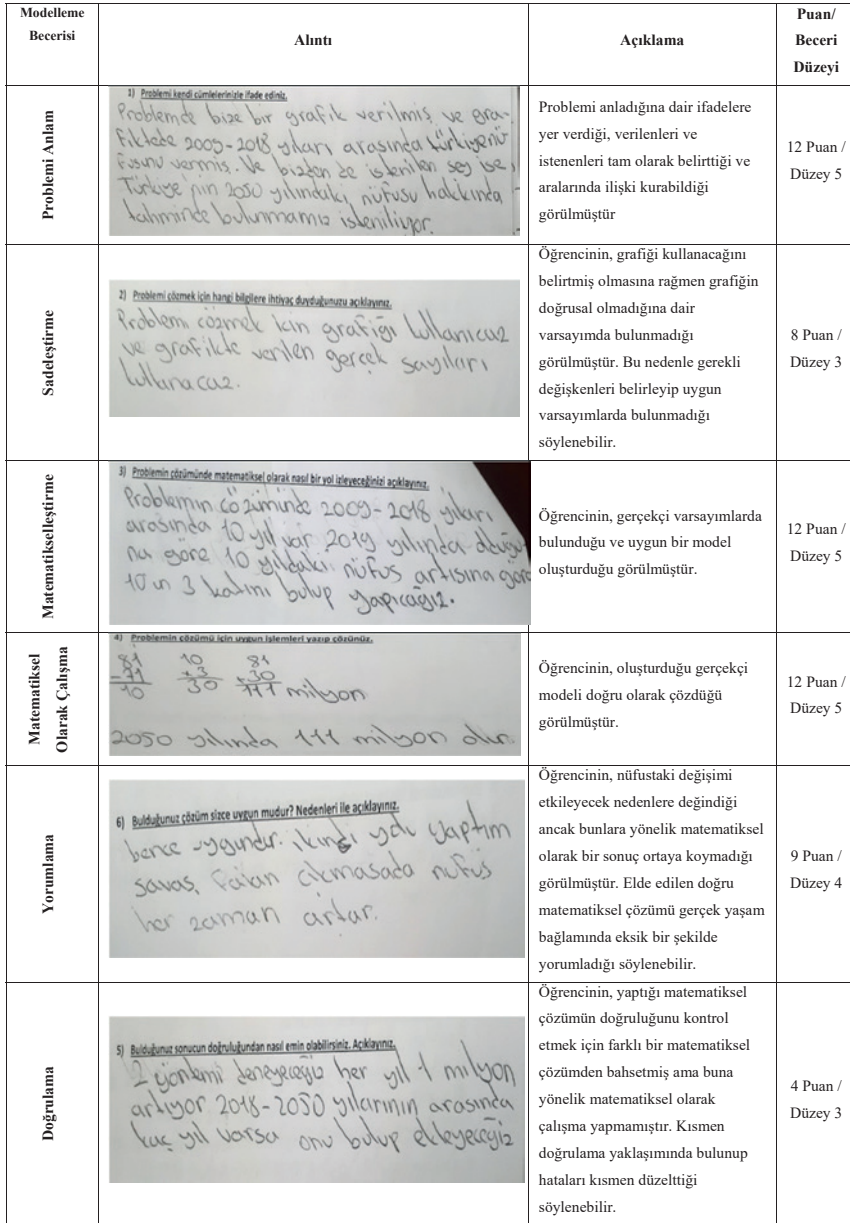 Modelleme
Becerisi
Alıntı
Açıklama
Puan/
Beceri
Düzeyi
Problemi Anlam
1) Problemi kendi cümlelerinizle ifade ediniz.
Problemde bize bir grafik verilmiş ve gra-
fiktede 2009-2018 yılları arasında türkiyenü
fusunu vermiş. Ve bizden de istenilen şey ise,
Türkiye'nin 2050 yılındaki, nüfusu hakkında
tahminde bulunmamız isteniliyor.
Problemi anladığına dair ifadelere
yer verdiği, verilenleri ve
istenenleri tam olarak belirttiği ve
aralarında ilişki kurabildiği
görülmüştür
12 Puan /
Düzey 5
Sadeleştirme
2) Problemi çözmek için hangi bilgilere ihtiyaç duyduğunuzu açıklayınız.
Problemi çözmek için grafiği kullanıcaz
ve grafikte verilen gerçek sayıları
kullanacaz.
Öğrencinin, grafiği kullanacağını
belirtmiş olmasına rağmen grafiğin
doğrusal olmadığına dair
varsayımda bulunmadığı
görülmüştür. Bu nedenle gerekli
değişkenleri belirleyip uygun
varsayımlarda bulunmadığı
söylenebilir.
8 Puan /
Düzey 3
Matematikselleştirme
3) Problemin çözümünde matematiksel olarak nasıl bir yol izleyeceğinizi açıklayınız.
Problemin çözümünde 2009-2018 yılları
arasında 10 yıl var 2019 yılında olduğu
na göre 10 yıldaki nüfus artısına göre
10 un 3 katını bulup yapıcağız.
Öğrencinin, gerçekçi varsayımlarda
bulunduğu ve uygun bir model
oluşturduğu görülmüştür.
12 Puan /
Düzey 5
Matematiksel
Olarak Çalışma
4) Problemin çözümü için uygun işlemleri yazıp çözünüz.
81 10 81
-71 x3 +30
10 30 111 milyon
2050 yılında 111 milyon olur.
Öğrencinin, oluşturduğu gerçekçi
modeli doğru olarak çözdüğü
görülmüştür.
12 Puan /
Düzey 5
Yorumlama
6) Bulduğunuz çözüm sizce uygun mudur? Nedenleri ile açıklayınız.
bence uygundur. ikinci yolu yaptım
savaş, falan çıkmasada nüfus
her zaman artar.
Öğrencinin, nüfustaki değişimi
etkileyecek nedenlere değindiği
ancak bunlara yönelik matematiksel
olarak bir sonuç ortaya koymadığı
görülmüştür. Elde edilen doğru
matematiksel çözümü gerçek yaşam
bağlamında eksik bir şekilde
yorumladığı söylenebilir.
9 Puan /
Düzey 4
Doğrulama
5) Bulduğunuz sonucun doğruluğundan nasıl emin olabilirsiniz. Açıklayınız.
2 yöntemi deneyeceğiz her yıl 1 milyon
artıyor 2018-2050 yıllarının arasında
kaç yıl varsa onu bulup ekleyeceğiz
Öğrencinin, yaptığı matematiksel
çözümün doğruluğunu kontrol
etmek için farklı bir matematiksel
çözümden bahsetmiş ama buna
yönelik matematiksel olarak
çalışma yapmamıştır. Kısmen
doğrulama yaklaşımında bulunup
hataları kısmen düzelttiği
söylenebilir.
4 Puan /
Düzey 3